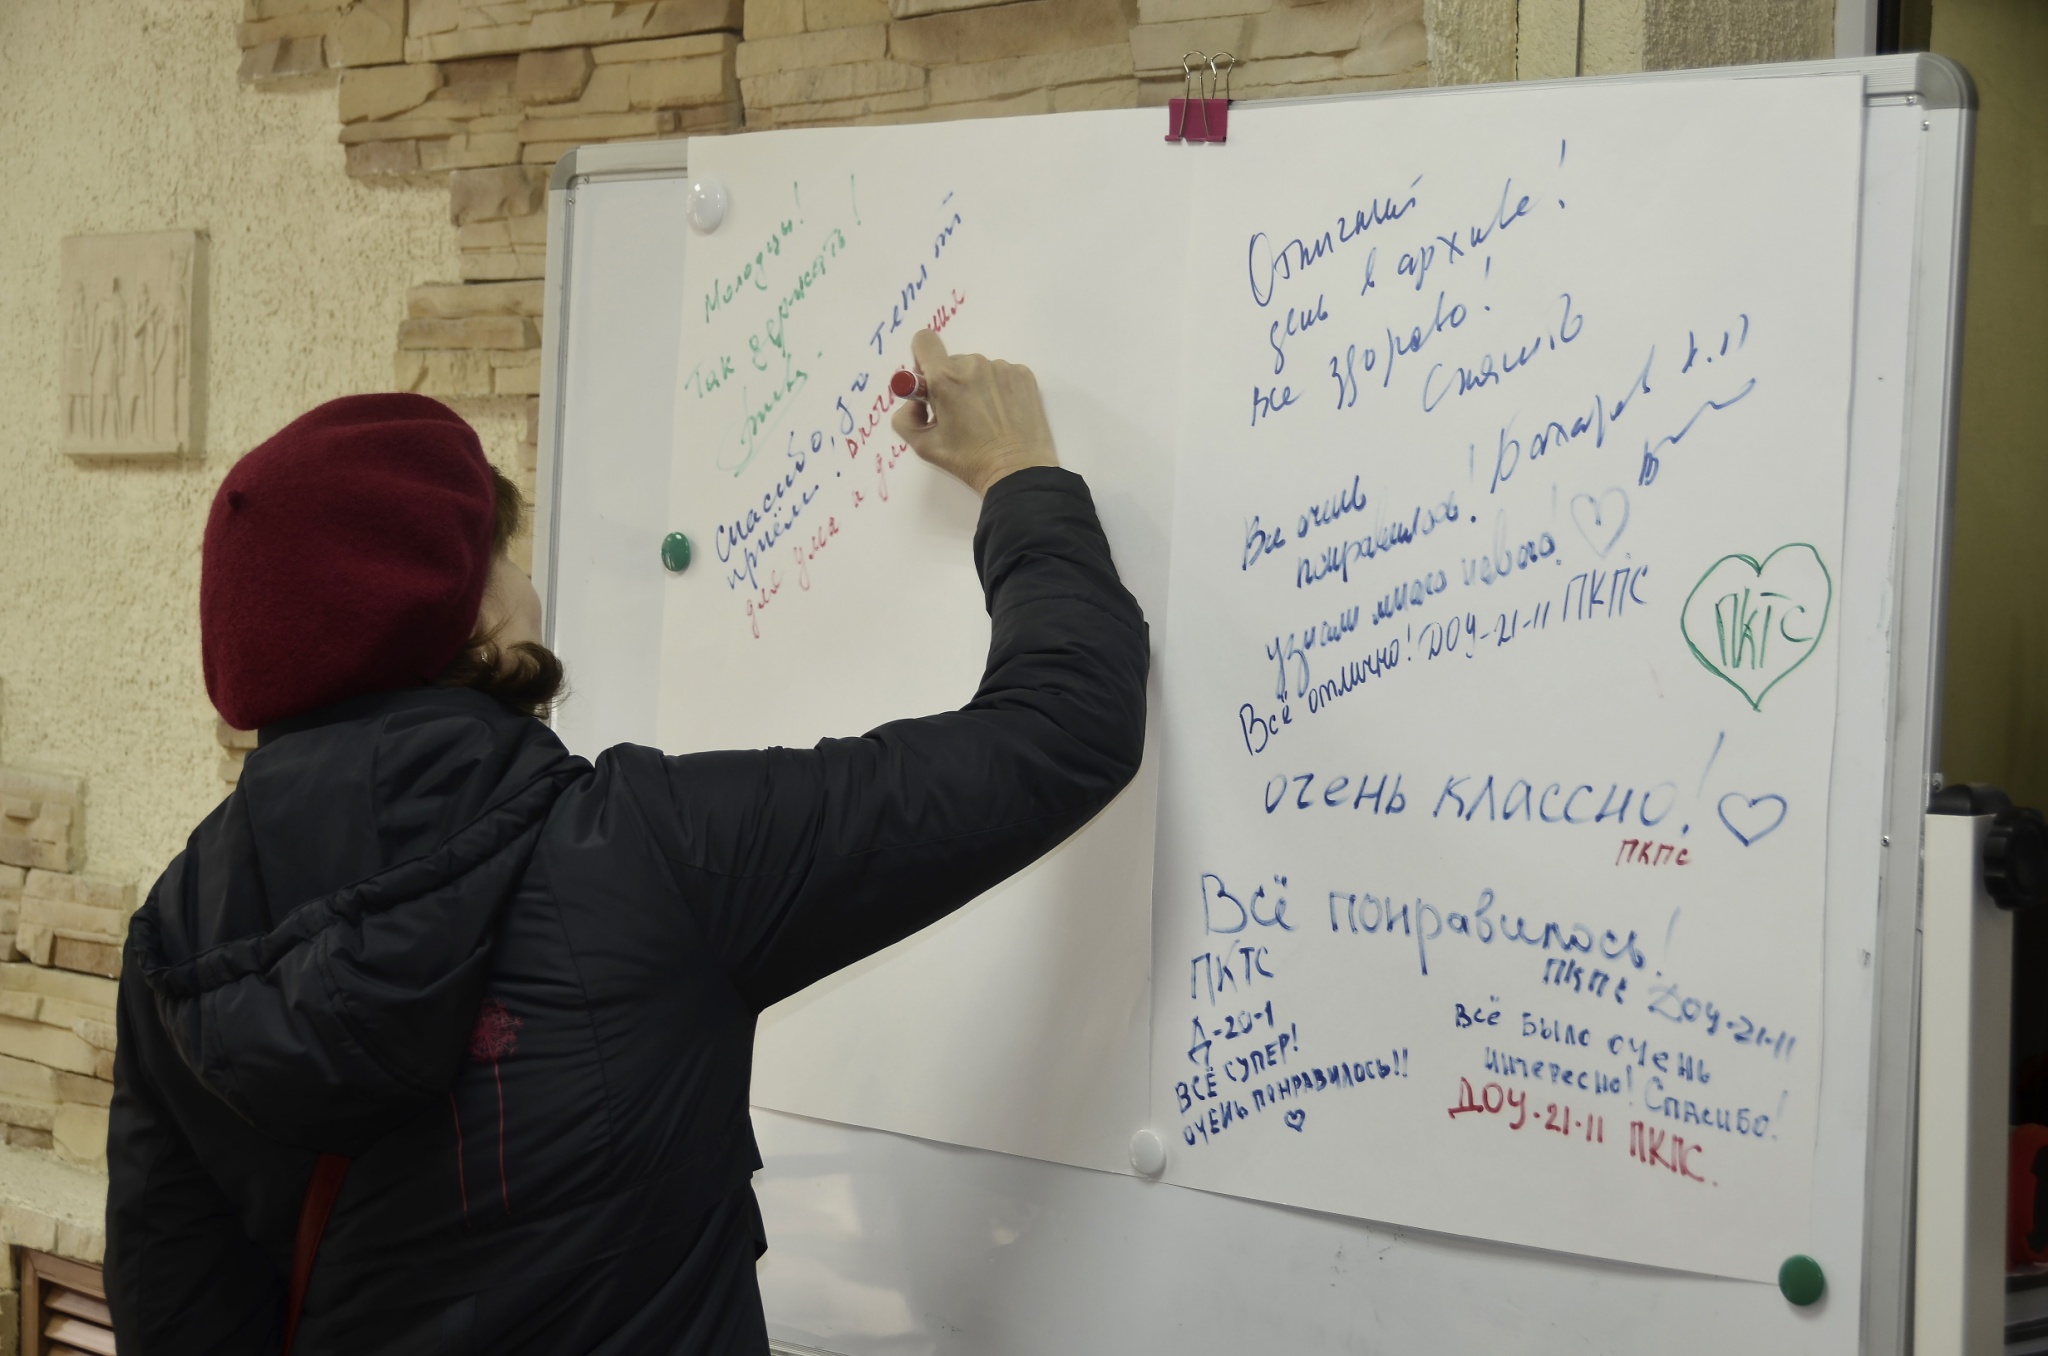 Молодцы!
Так держать!
Спасибо, за теплый
приём!
для ума и
Отличный
день в архиве!
все здорово!
Спасибо
Все очень
понравилось!
узнали много нового!
Всё отлично! ДОУ-21-11 ПКПС
ПКТС
очень классно!
ПКПС
Всё понравилось!
ПКПС ДОУ-21-11
ПКТС
Д-20-1
ВСЁ СУПЕР!
ОЧЕНЬ ПОНРАВИЛОСЬ!!
Всё было очень
интересно! Спасибо!
ДОУ-21-11 ПКПС.